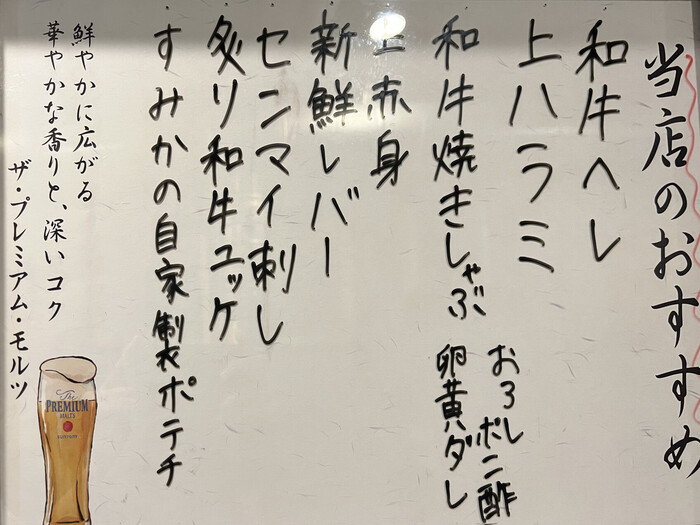 当店のおすすめ
和牛ヘレ
上ハラミ
和牛焼きしゃぶ
おろしポン酢
卵黄ダレ
上赤身
新鮮レバー
センマイ刺し
炙り和牛ユッケ
すみかの自家製ポテチ
鮮やかに広がる
華やかな香りと、深いコク
ザ・プレミアム・モルツ
The
PREMIUM
MALT'S
SUNTORY